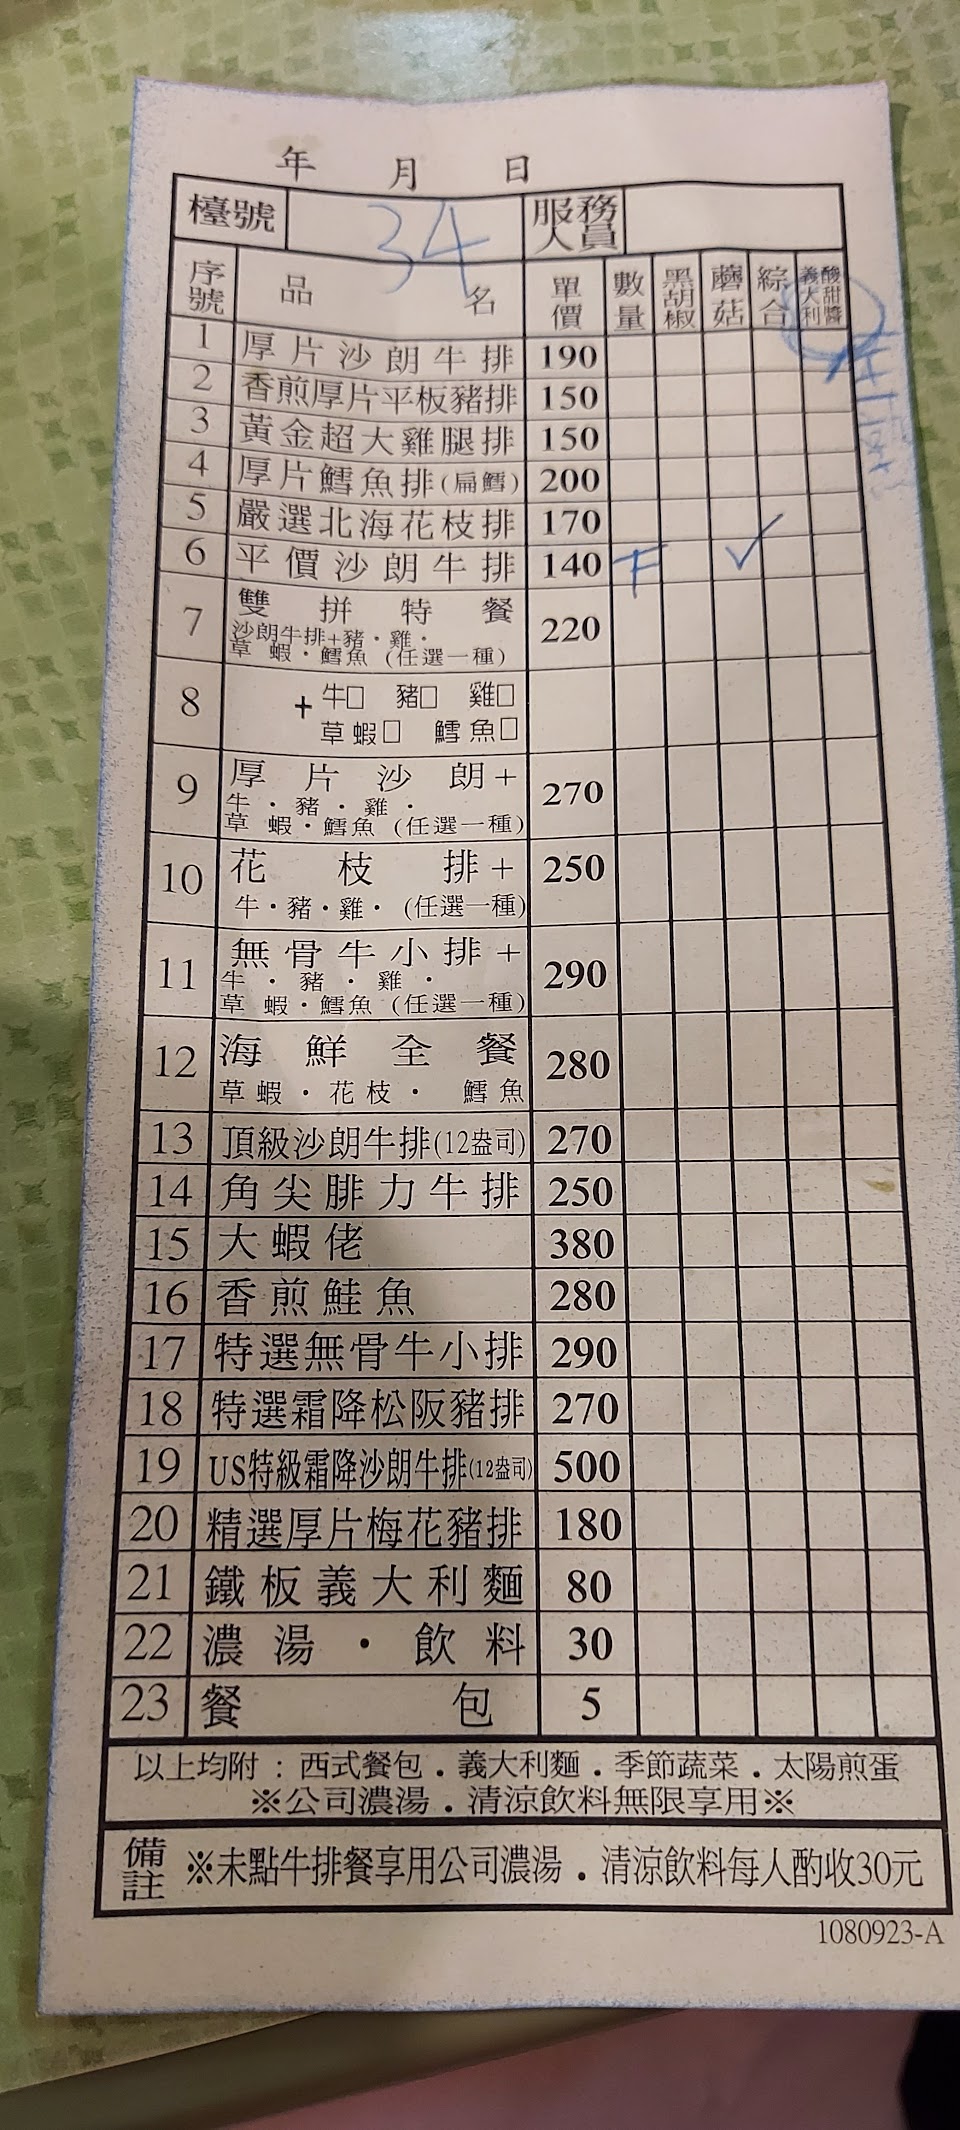 年 月 日
檯號 34 服務人員
序號 品名 單價 數量 黑胡椒 蘑菇 綜合 義大利 酸甜醬
1 厚片沙朗牛排 190
2 香煎厚片平板豬排 150
3 黃金超大雞腿排 150
4 厚片鱈魚排(扁鱈) 200
5 嚴選北海花枝排 170
6 平價沙朗牛排 140 ✓
7 雙拼特餐 220
沙朗牛排+豬・雞・
草蝦・鱈魚 (任選一種)
8 + 牛□ 豬□ 雞□
草蝦□ 鱈魚□
9 厚片沙朗+ 270
牛・豬・雞・
草蝦・鱈魚 (任選一種)
10 花枝排+ 250
牛・豬・雞・ (任選一種)
11 無骨牛小排+ 290
牛・豬・雞・
草蝦・鱈魚 (任選一種)
12 海鮮全餐 280
草蝦・花枝・鱈魚
13 頂級沙朗牛排(12盎司) 270
14 角尖腓力牛排 250
15 大蝦佬 380
16 香煎鮭魚 280
17 特選無骨牛小排 290
18 特選霜降松阪豬排 270
19 US特級霜降沙朗牛排(12盎司) 500
20 精選厚片梅花豬排 180
21 鐵板義大利麵 80
22 濃湯・飲料 30
23 餐包 5
以上均附：西式餐包．義大利麵．季節蔬菜．太陽煎蛋
※公司濃湯．清涼飲料無限享用※
備註 ※未點牛排餐享用公司濃湯．清涼飲料每人酌收30元
1080923-A